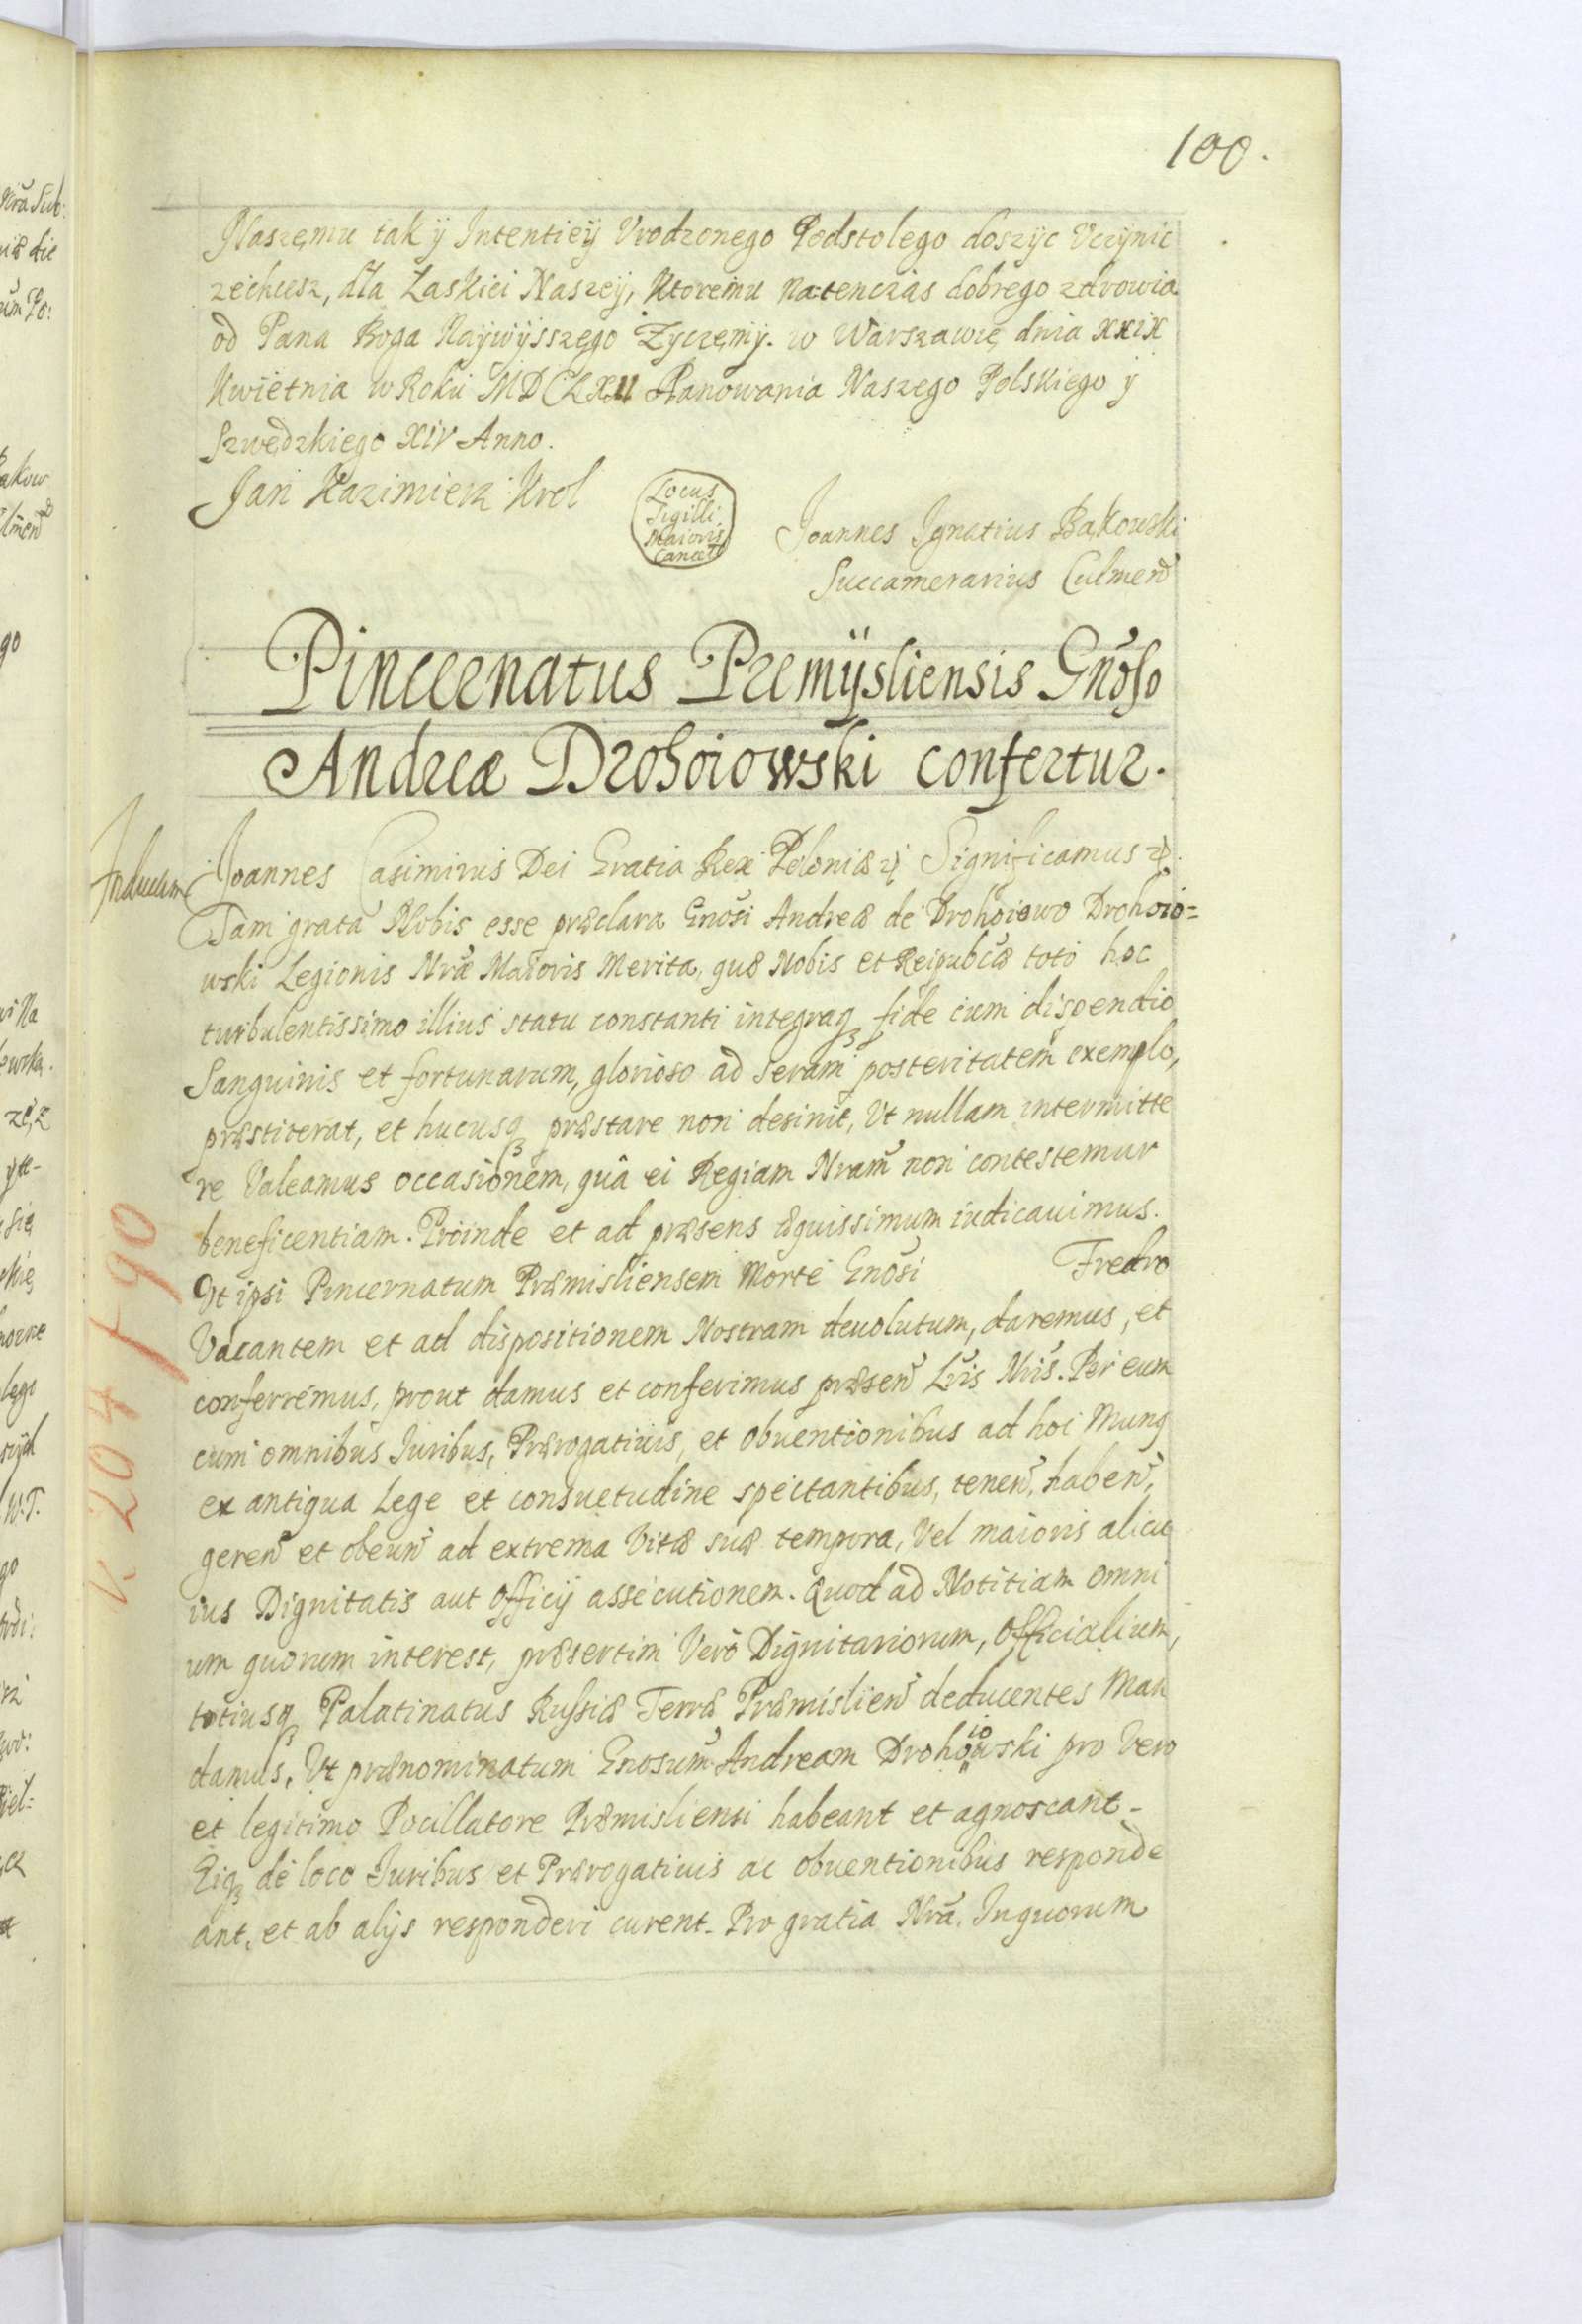 100.
Naszemu tak ÿ Intentieÿ Vrodzonego Podstolego doszÿc Vczÿnic
zechcesz, dla Łaskiei Naszeÿ, Ktoremu natenczas dobrego zdrowia
od Pana Boga Naÿwÿsszego Zÿczemÿ. w Warszawie dnia XXIX
Kwietnia w Roku MDCLXII Panowania Naszego Polskiego ÿ
Szwedzkiego XIV Anno.
Jan Kazimierz Krol
Locus
Sigilli
Maioris
Cancell
Joannes Ignatius Bąkowski
Succamerarius Culmen̄
Pincernatus Premÿsliensis Gnõso
Andreæ Drohoiowski confertur.
Joannes Casimirus Dei Gratia Rex Poloniæ ꝛc Significamus ꝛc.
Tam grata Nobis esse præclara Gnõsi Andreæ de Drohoiowo Drohoio=
wski Legionis Nræ Maioris Merita, quæ Nobis et Reipubcæ toto hoc
turbulentissimo illius statu constanti integraq₃ fide cum dispendio
Sanguinis et fortunarum, glorioso ad seram posteritatem exemplo,
præstiterat, et hucusq₃ præstare non desinit, Vt nullam intermitte
re Valeamus occasionem, quâ ei Regiam Nram̃ non contestemur
beneficentiam. Proinde et ad præsens æquissimum iudicauimus.
Vt ipsi Pincernatum Præmisliensem Morte Gnõsi Fredro
Vacantem et ad dispositionem Nostram deuolutum, daremus, et
conferremus, prout damus et conferimus præsen̄ Lr̃is Nr̃is. Per eum
cum omnibus Iuribus, Prærogatiuis, et obuentionibus ad hoc Munq
ex antiqua Lege et consuetudine spectantibus, tenen̄, haben̄,
geren̄ et obeun̄ ad extrema Vitæ suæ tempora, Vel maioris alicu
ius Dignitatis aut Officij assecutionem. Quod ad Notitiam omni
um quorum interest, præsertim Verò Dignitariorum, Officialium,
totiusq₃ Palatinatus Russiæ Terræ Præmislien̄ deducentes Man
damus, Vt prænominatum Gnosum̃ Andream Drohoiowski pro Vero
et legitimo Pocillatore Præmisliensi habeant et agnoscant_
Eiq₃ de loco Iuribus et Prærogatiuis ac obuentionibus responde
ant, et ab alijs responderi curent_ Pro gratia Nrã. Inquorum
K 204 f 90